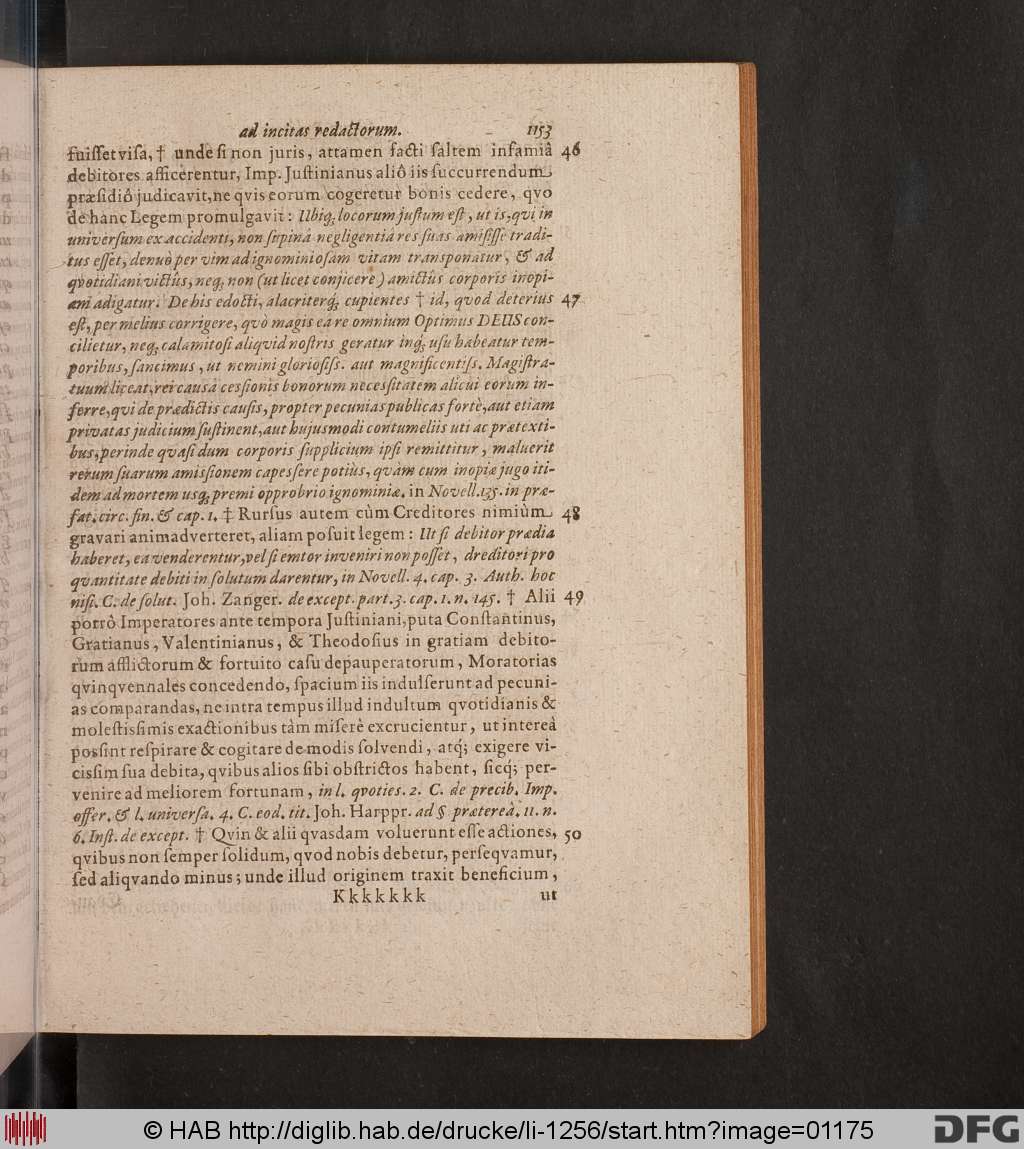 ad incitas redactorum. 1153
fuiſſet viſa, † unde ſi non juris, attamen facti ſaltem infamiâ 46
debitores afficerentur, Imp. Juſtinianus aliô iis ſuccurrendum
præſidiô judicavit, ne qvis eorum cogeretur bonis cedere, qvo
de hanc Legem promulgavit: Ubiq; locorum juſtum eſt, ut is, qvi in
univerſum ex accidenti, non ſupinâ negligentiâ res ſuas amiſiſſe tradi-
tus eſſet, denuò per vim ad ignominioſam vitam transponatur, & ad
qvotidiani victûs, neq; non (ut licet conjicere) amictûs corporis inopi-
am adigatur. De his edocti, alacriterq; cupientes † id, qvod deterius 47
eſt, per melius corrigere, qvò magis ea re omnium Optimus DEUS con-
cilietur, neq; calamitoſi aliqvid noſtris geratur inq; uſu habeatur tem-
poribus, ſancimus, ut nemini glorioſiſs. aut magnificentiſs. Magiſtra-
tuum liceat, rei causâ cesſionis bonorum necesſitatem alicui eorum in-
ferre, qvi de prædictis cauſis, propter pecunias publicas fortè, aut etiam
privatas judicium ſuſtinent, aut hujusmodi contumeliis uti ac prætexti-
bus, perinde qvaſi dum corporis ſupplicium ipſi remittitur, maluerit
rerum ſuarum amisſionem capesſere potiùs, qvàm cum inopiæ jugo iti-
dem ad mortem usq; premi opprobrio ignominiæ. in Novell. 135. in præ-
fat. circ. fin. & cap. 1. ‡ Rurſus autem cùm Creditores nimiùm 48
gravari animadverteret, aliam poſuit legem: Ut ſi debitor prædia
haberet, ea venderentur, vel ſi emtor inveniri non poſſet, dreditori pro
qvantitate debiti in ſolutum darentur, in Novell. 4. cap. 3. Auth. hoc
niſi. C. de ſolut. Joh. Zanger. de except. part. 3. cap. 1. n. 145. † Alii 49
porrò Imperatores ante tempora Juſtiniani, puta Conſtantinus,
Gratianus, Valentinianus, & Theodoſius in gratiam debito-
rum afflictorum & fortuito caſu depauperatorum, Moratorias
qvinqvennales concedendo, ſpacium iis indulſerunt ad pecuni-
as comparandas, ne intra tempus illud indultum qvotidianis &
moleſtisſimis exactionibus tàm miſerè excrucientur, ut intereà
posſint reſpirare & cogitare de modis ſolvendi, atq; exigere vi-
cisſim ſua debita, qvibus alios ſibi obſtrictos habent, ſicq; per-
venire ad meliorem fortunam, in l. qvoties. 2. C. de precib. Imp.
offer. & l. univerſa. 4. C. eod. tit. Joh. Harppr. ad § prætereà. 11. n.
6. Inſt. de except. † Qvin & alii qvasdam voluerunt eſſe actiones, 50
qvibus non ſemper ſolidum, qvod nobis debetur, perſeqvamur,
ſed aliqvando minus; unde illud originem traxit beneficium,
Kkkkkkk ut
© HAB http://diglib.hab.de/drucke/li-1256/start.htm?image=01175
DFG